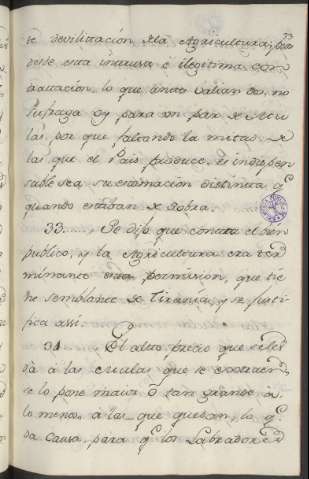 33
se devilittación dela Agricultura; des
desde esta intrusa e ilegitima con
tratación, lo que antes valian dos, no
sufraga oy para un par de Mu
las, por que faltando la mitad de
las que el País produce, es indispen
sable sea su estimación distinta q.e
quando estaban de sobra.
33....., Se dijo que contra el bien
publico, y la Agricultura era ter
minante esta permision, que tie
ne semblante de Tiranía, y se justi
fica assi.
34. El alto precio que se les
dà à las que se
se lo pone maior ò tan grande, à
lo menos à las que quedan, lo q.e
da causa, para q.e los Labradores